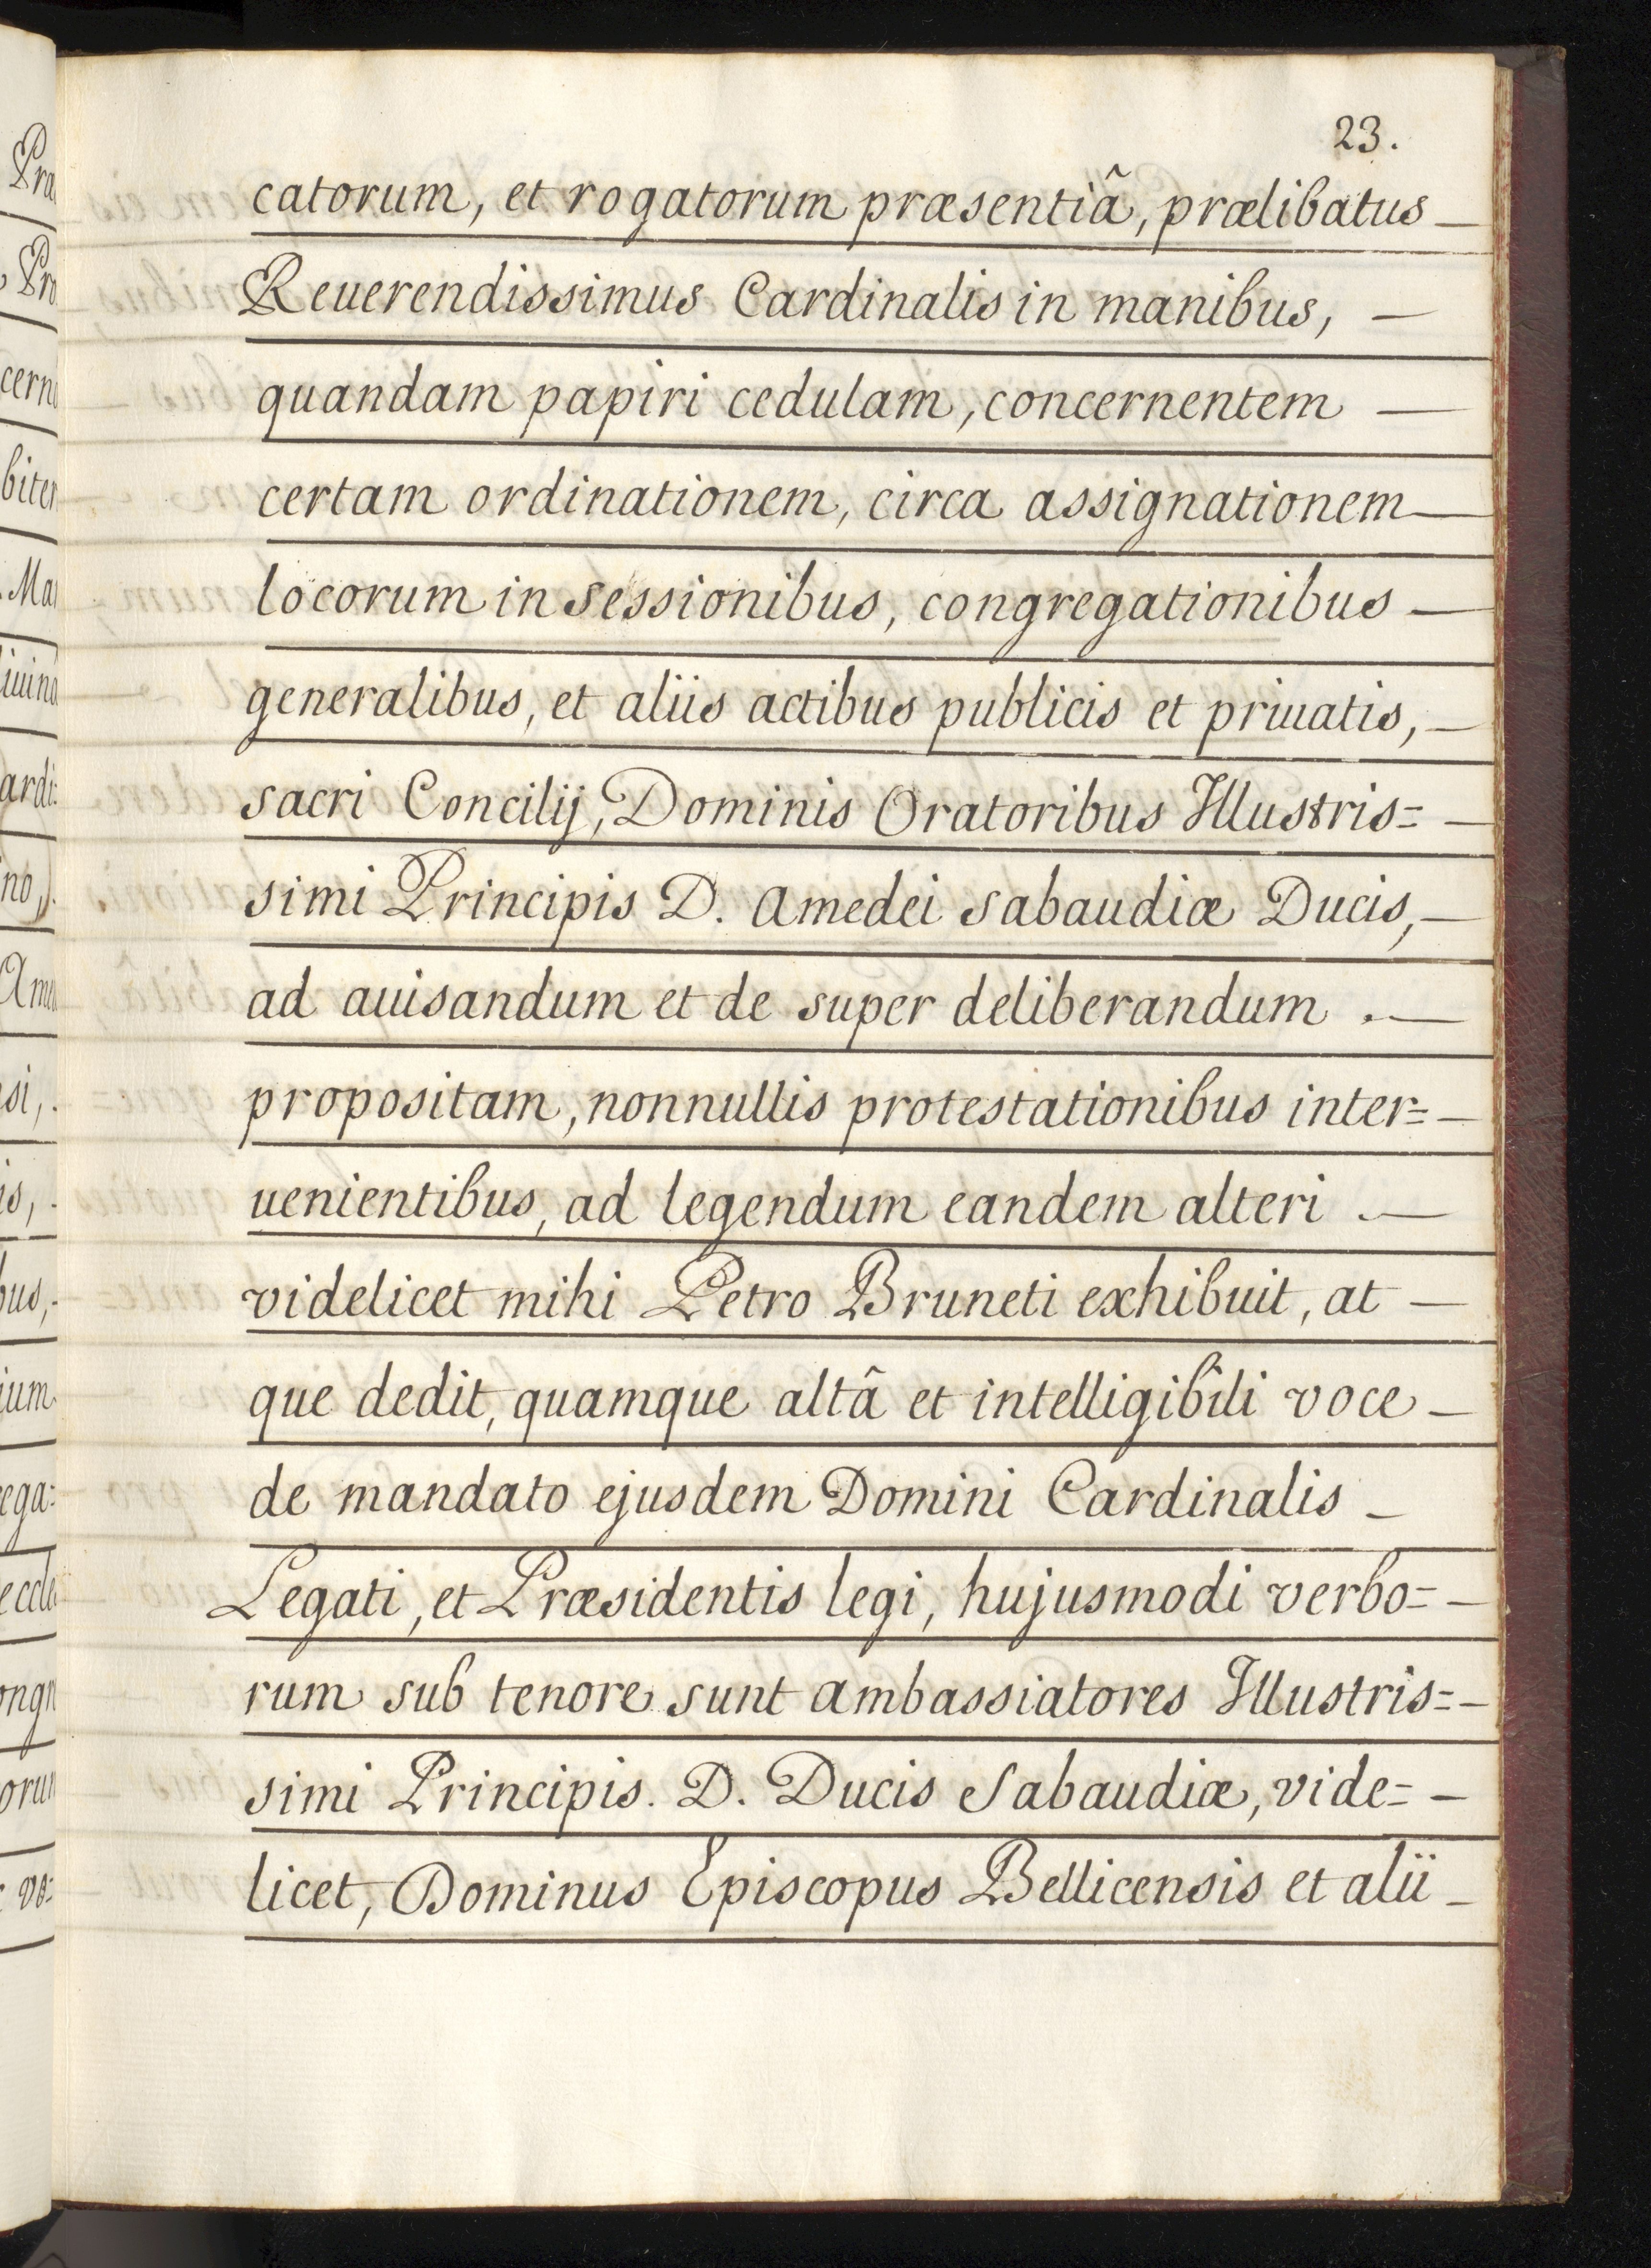 23.
catorum, et rogatorum præsentiâ, prælibatus —
Reuerendissimus Cardinalis in manibus, —
quandam papiri cedulam, concernentem —
certam ordinationem, circa assignationem —
locorum in sessionibus, congregationibus —
generalibus, et aliis actibus publicis et priuatis, —
sacri Concilij, Dominis Oratoribus Illustris= —
simi Principis D. Amedei Sabaudiæ Ducis, —
ad auisandum et de super deliberandum . —
propositam, nonnullis protestationibus inter= —
uenientibus, ad legendum eandem alteri . —
videlicet mihi Petro Bruneti exhibuit, at —
que dedit, quamque altâ et intelligibili voce —
de mandato ejusdem Domini Cardinalis —
Legati, et Præsidentis legi, hujusmodi verbo= —
rum sub tenore sunt ambassiatores Illustris= —
simi Principis. D. Ducis Sabaudiæ, vide= —
licet, Dominus Episcopus Bellicensis et alii —